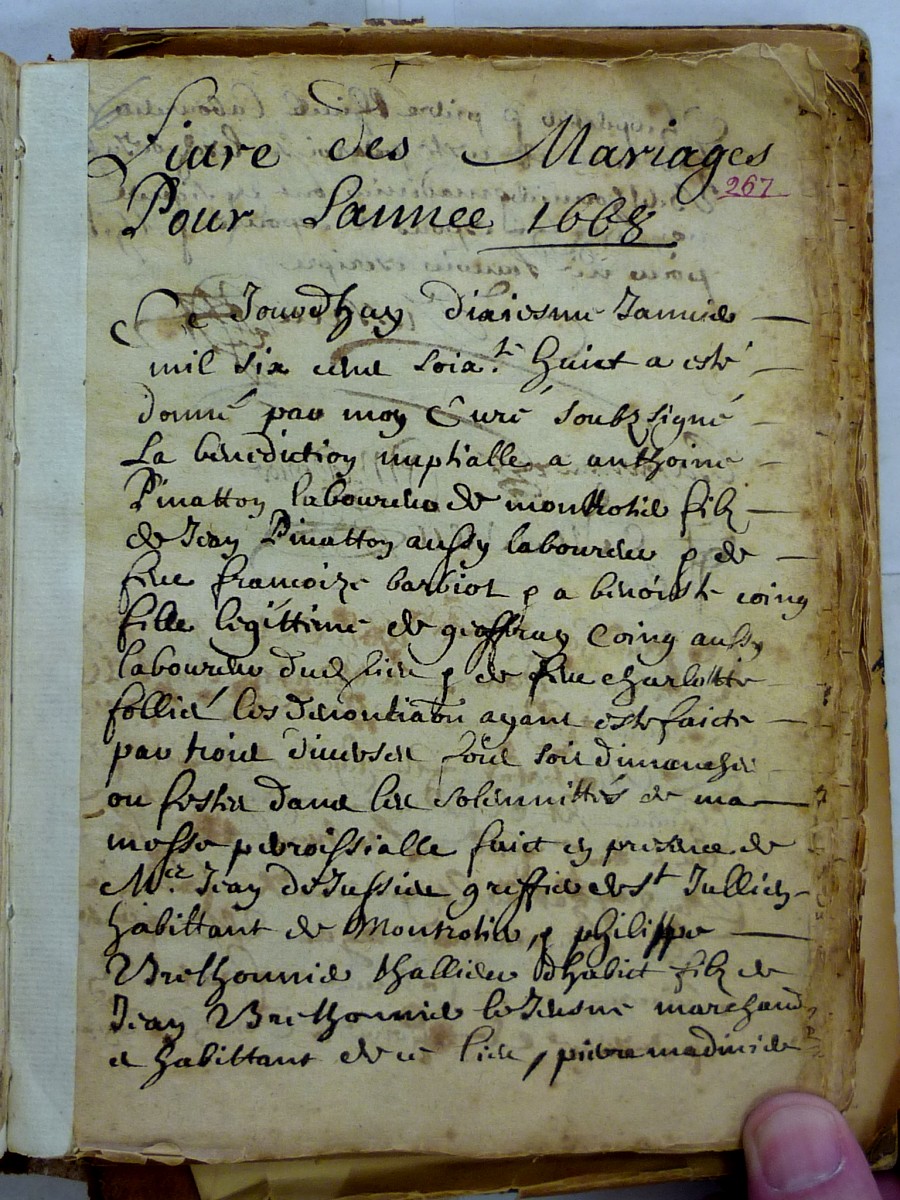 Liure des Mariages
267
Pour Lannee 1668
Ce Jourdhuy dixiesme Januier
mil six cens soixte huict a esté
donné par moy Curé soubzsigné
La bénédiction nuptialle a anthoine
Pinatton laboureur de montrotier filz
de Jean Pinatton aussy laboureur & de
feue francoize barbiot & a benoiste coing
fille légittime de geoffray Coing aussy
laboureur dud lieu & de feue charlotte
follié les dénontiaõn ayant esté faicte
par trois diuerses fois soit dimanches
ou festes dans les solennittés de ma
messe perroissialle faict en presence de
Mre Jean deJussieu greffier de St Jullien
habittant de Montrotier, & philippe
Brethonnier thallieur dhabict filz de
Jean Brethonnier le Jeusne marchand
et habittant de ce lieu, pierre madinier